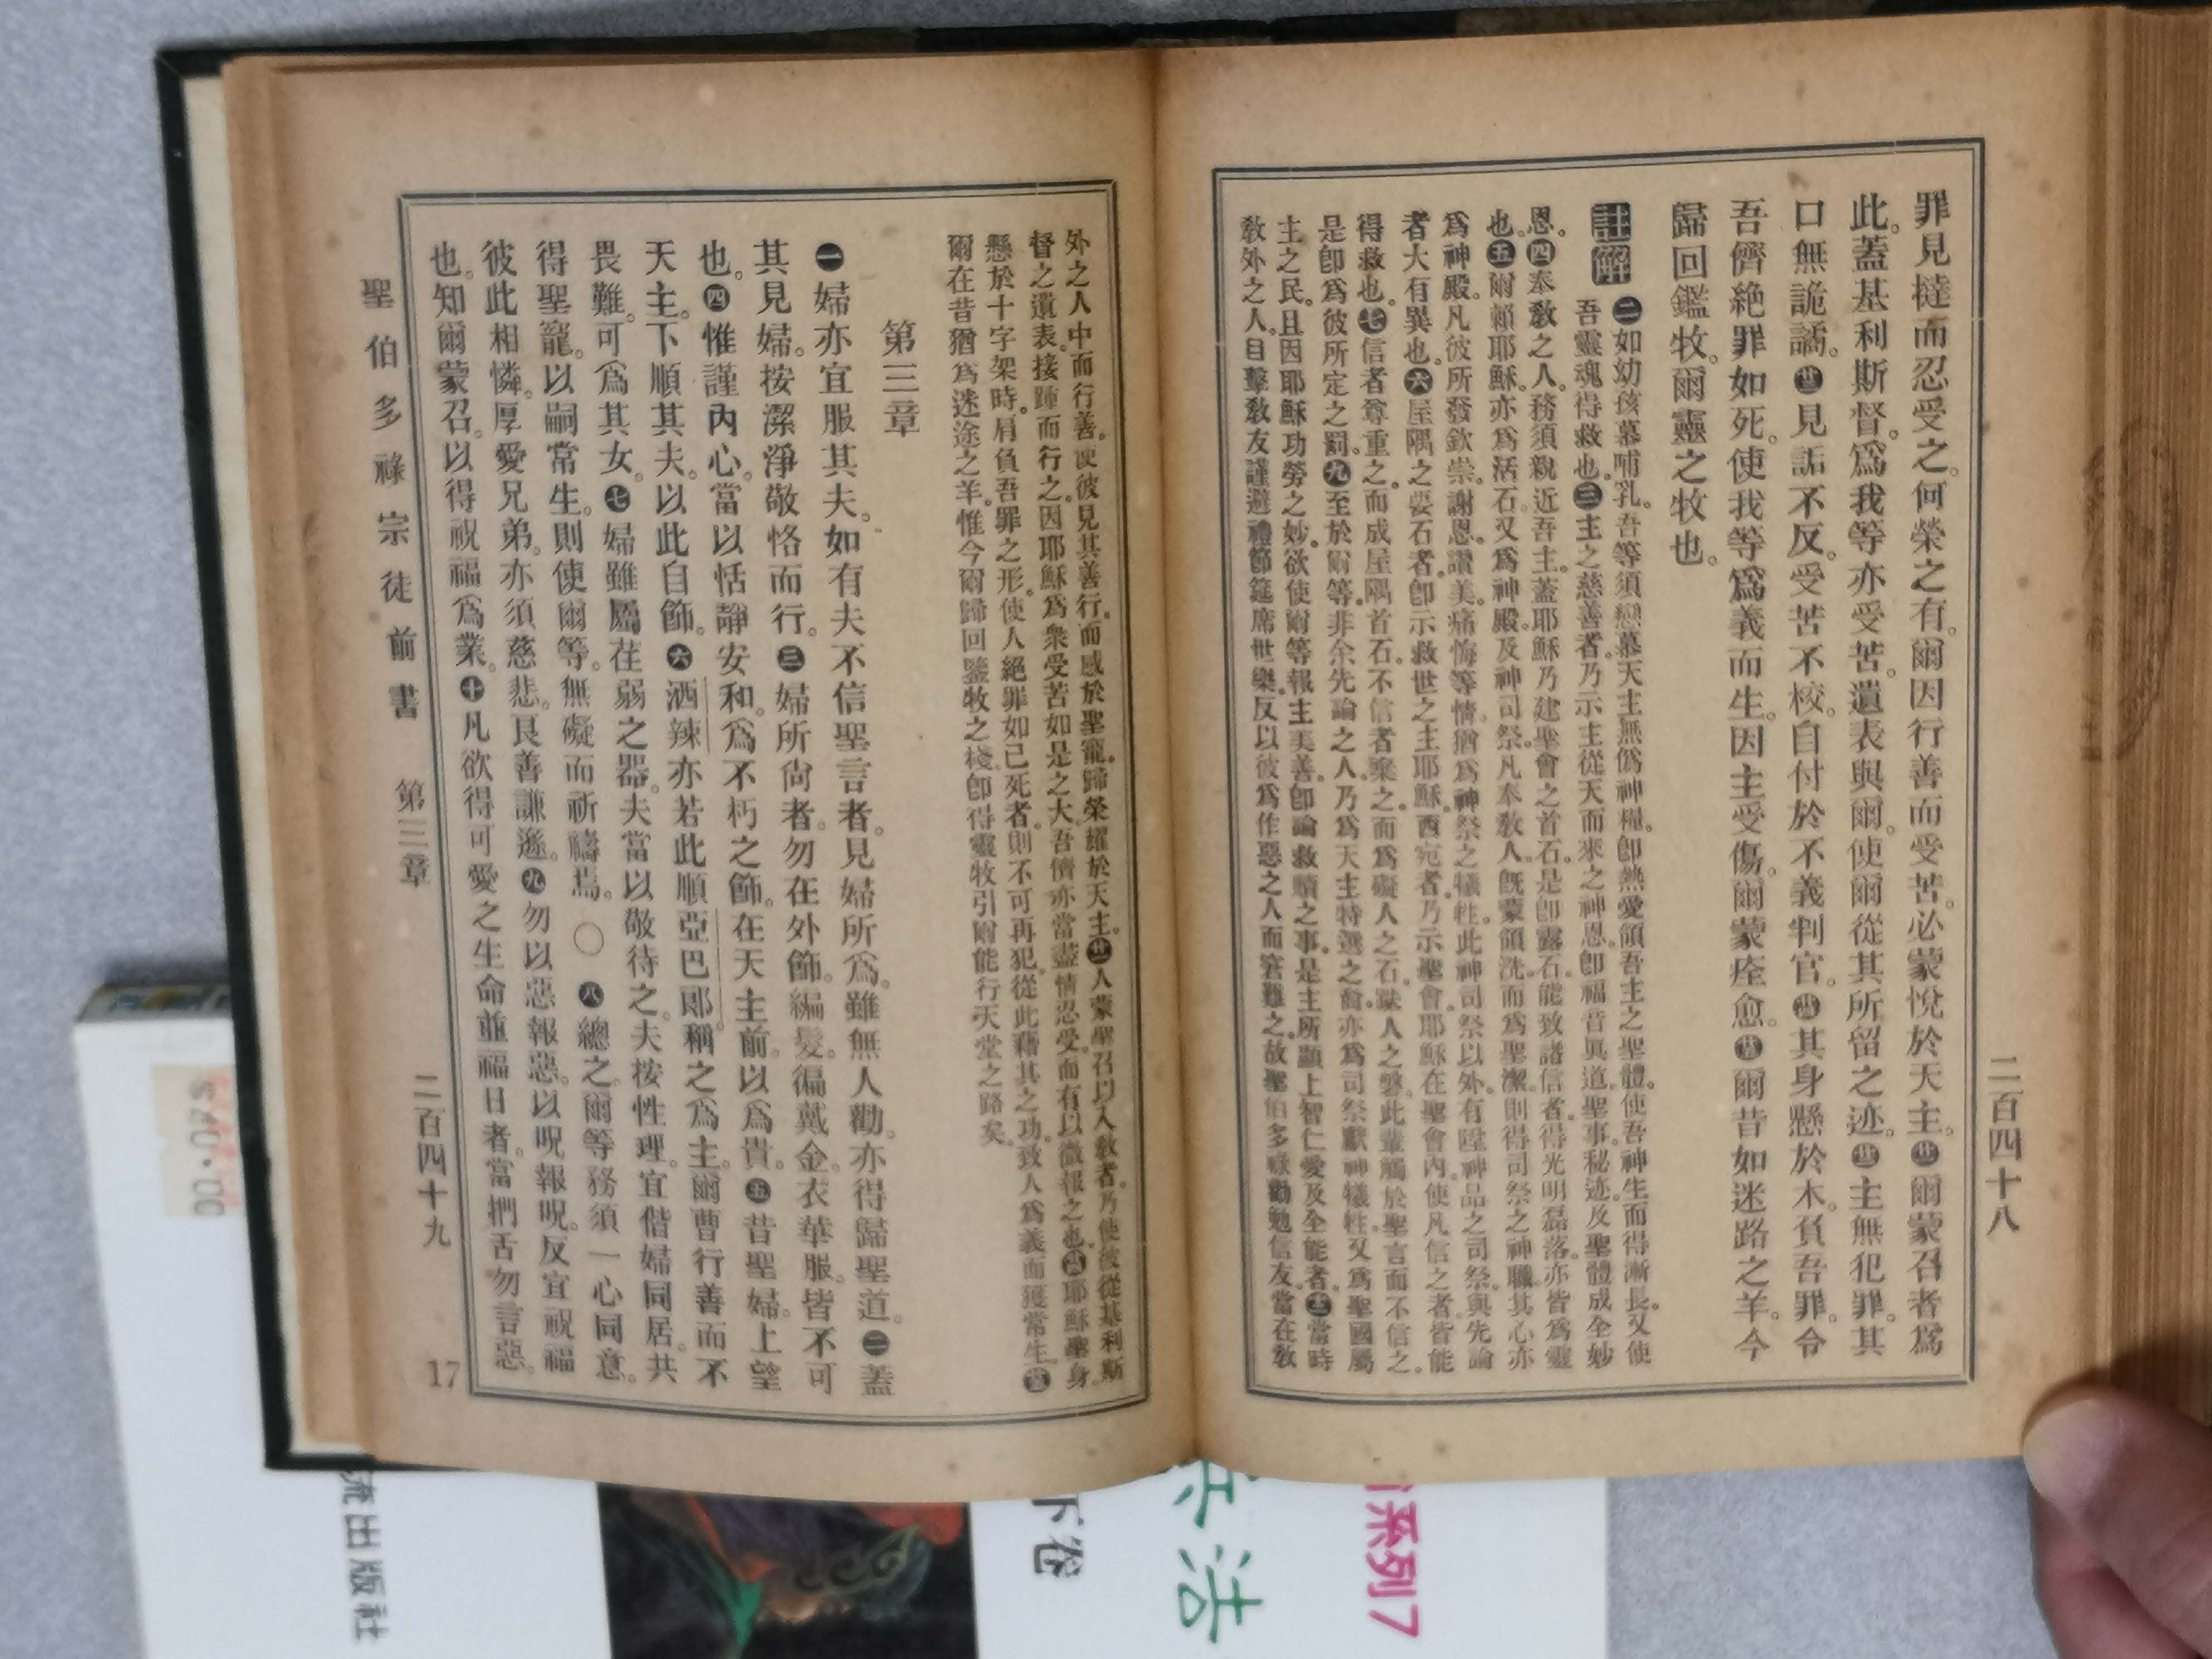 罪見撻而忍受之。何榮之有。爾因行善而受苦。必蒙悅於天主。㊁爾蒙召者爲
此。蓋基利斯督。爲我等亦受苦。遺表與爾。使爾從其所留之迹。主無犯罪。其
口無詭譎。見詬不反。受苦不校。自付於不義判官。其身懸於木。負吾罪。令
吾儕絕罪如死。使我等爲義而生。因主受傷。爾蒙痊愈。爾昔如迷路之羊。今
歸回鑑牧。爾靈之牧也。
註解
二如幼孩慕哺乳。吾等須戀慕天主無僞神糧。卽熱愛領吾主之聖體。使吾神生而得漸長。又使
吾靈魂得救也。三主之慈善者。乃示主從天而來之神恩。卽福音眞道。聖事秘迹。及聖體成全妙
恩。四奉敎之人。務須親近吾主。蓋耶穌乃建聖會之首石。是卽靈石。能致諸信者。得光明磊落。亦皆爲靈
也。五爾賴耶穌。亦爲活石。又爲神殿。及神司祭。凡奉敎人。旣蒙領洗。而爲聖潔。則得司祭之神職。其心亦
爲神殿。凡彼所發欽崇。謝恩。讚美。痛悔等情。猶爲神祭之犧牲。此神司祭以外。有陞神品之司祭。與先論
者大有異也。六屋隅之要石者。卽示救世之主耶穌。西宛者。乃示聖會。耶穌在聖會內。使凡信之者。皆能
得救也。七信者尊重之。而成屋隅首石。不信者棄之。而爲礙人之石。跌人之磐。此輩觸於聖言而不信之。
是卽爲彼所定之罰。九至於爾等。非余先論之人。乃爲天主特選之裔。亦爲司祭。獻神犧牲。又爲聖國屬
主之民。且因耶穌功勞之妙。欲使爾等報主美善。卽論救贖之事。是主所顯上智仁愛及全能者。當時
敎外之人。目擊敎友謹避禮節筵席世樂。反以彼爲作惡之人而窘難之。故聖伯多祿勸勉信友。當在敎
二百四十八
外之人中而行善。使彼見其善行。而感於聖寵。歸榮耀於天主。人蒙聖召以入敎者。乃使彼從基利斯
督之遺表。接踵而行之。因耶穌爲衆受苦如是之大。吾儕亦當盡情忍受。而有以微報之也。耶穌聖身。
懸於十字架時。肩負吾罪之形。使人絕罪如已死者。則不可再犯。從此藉其之功。致人爲義而獲常生。
爾在昔猶爲迷途之羊。惟今爾歸回鑒牧之棧。卽得靈牧引爾能行天堂之路矣。
第三章
一婦亦宜服其夫。如有夫不信聖言者。見婦所爲。雖無人勸。亦得歸聖道。二蓋
其見婦。按潔淨敬恪而行。三婦所尙者。勿在外飾。編髮。徧戴金。衣華服。皆不可
也。四惟謹內心。當以恬靜安和。爲不朽之飾。在天主前。以爲貴。五昔聖婦。上望
天主。下順其夫。以此自飾。六洒辣亦若此順亞巴郞。稱之爲主。爾曹行善而不
畏難。可爲其女。七婦雖屬荏弱之器。夫當以敬待之。夫按性理。宜偕婦同居。共
得聖寵。以嗣常生。則使爾等。無礙而祈禱焉。〇八總之。爾等務須一心同意。
彼此相憐。厚愛兄弟。亦須慈悲。良善謙遜。九勿以惡報惡。以呪報呪。反宜祝福
也。知爾蒙召。以得祝福爲業。十凡欲得可愛之生命並福日者。當捫舌勿言惡。
聖伯多祿宗徒前書 第三章 二百四十九
17
$40.00
流出版社
下卷
兵法
系列7